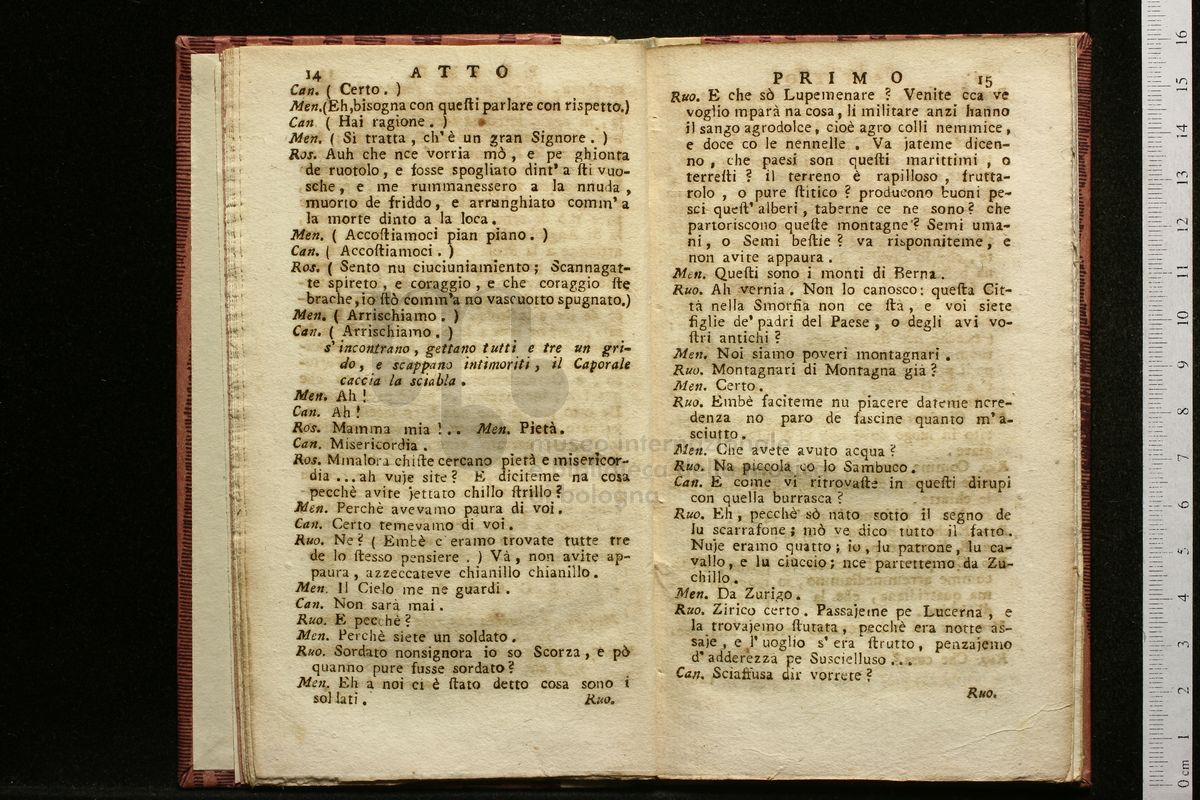 14 ATTO
Can. ( Certo. )
Men.(Eh,bisogna con queſti parlare con riſpetto.)
Can. ( Hai ragione. )
Men. ( Si tratta, ch'è un gran Signore. )
Ros. Auh che nce vorria mò, e pe ghionta
de ruotolo, e foſse spogliato dint'a ſti vuo-
sche, e me rummanessero a la nnuda,
muorto de friddo, e arranghiato comm'a
la morte dinto a la loca.
Men. ( Accoſtiamoci pian piano. )
Can. ( Accoſtiamoci. )
Ros. ( Sento nu ciuciuniamiento; Scannagat-
te spireto, e coraggio, e che coraggio ſte
brache, io ſtò comm'a no vascuotto spugnato.)
Men. ( Arrischiamo. )
Can. ( Arrischiamo. )
s'incontrano, gettano tutti e tre un gri-
do, e scappano intimoriti, il Caporale
caccia la sciabla.
Men. Ah!
Can. Ah!
Ros. Mamma mia!.. Men. Pietà.
Can. Misericordia.
Ros. Mmalora chiſte cercano pietà e misericor-
dia...ah vuje site? E diciteme na cosa
pecchè avite jettato chillo ſtrillo?
Men. Perchè avevamo paura di voi.
Can. Certo temevamo di voi.
Ruo. Ne? ( Embè c'eramo trovate tutte tre
de lo ſtesso pensiere. ) Và, non avite ap-
paura, azzeccateve chianillo chianillo.
Men. Il Cielo me ne guardi.
Can. Non sarà mai.
Ruo. E pecchè?
Men. Perchè siete un soldato.
Ruo. Sordato nonsignora io so Scorza, e pò
quanno pure fusse sordato?
Men. Eh a noi ci è ſtato detto cosa sono i
soldati. Ruo.
PRIMO 15
Ruo. E che sò Lupemenare? Venite cca ve
voglio mparà na cosa, li militare anzi hanno
il sango agrodolce, cioè agro colli nemmice,
e doce co le nennelle. Va jateme dicen-
no, che paesi son queſti marittimi, o
terreſti? il terreno è rapilloso, frutta-
rolo, o pure ſtitico? producono buoni pe-
sci queſt'alberi, taberne ce ne sono? che
partoriscono queſte montagne? Semi uma-
ni, o Semi beſtie? va risponniteme, e
non avite appaura.
Men. Queſti sono i monti di Berna.
Ruo. Ah vernia. Non lo canosco: queſta Cit-
tà nella Smorfia non ce ſta, e voi siete
figlie de' padri del Paese, o degli avi vo-
ſtri antichi?
Men. Noi siamo poveri montagnari.
Ruo. Montagnari di Montagna già?
Men. Certo.
Ruo. Embè faciteme nu piacere dateme ncre-
denza no paro de fascine quanto m'a-
sciutto.
Men. Che avete avuto acqua?
Ruo. Na piccola co lo Sambuco.
Can. E come vi ritrovaſte in queſti dirupi
con quella burrasca?
Ruo. Eh, pecchè sò nato sotto il segno de
lu scarrafone; mò ve dico tutto il fatto.
Nuje eramo quatto; io, lu patrone, lu ca-
vallo, e lu ciuccio; nce partettemo da Zu-
chillo.
Men. Da Zurigo.
Ruo. Zirico certo. Passajeme pe Lucerna, e
la trovajemo ſtutata, pecchè era notte as-
saje, e l'uoglio s'era ſtrutto, penzajemo
d'adderezza pe Suscielluso...
Can. Sciaffusa dir vorrete?
Ruo.
museo internazionale
bologna
0 cm 1 2 3 4 5 6 7 8 9 10 11 12 13 14 15 16